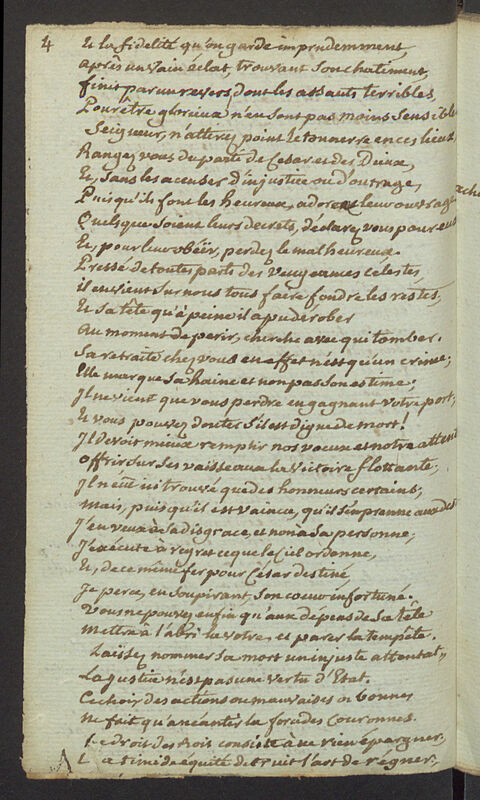 4
Et la fidelité qu'on garde imprudemment,
après un vain éclat, trouvant son chatiment,
finit par un revers, dont les assauts terribles,
Pour être glorieux n'en sont pas moins sensibles
Seigneur, n'attirez point le tonnerre en ces lieux,
Rangez vous du parti de Cesar et des Dieux,
Et, sans les accuser d'injustice ou d'outrage,
Puisqu'ils font les heureux, adorez leur ouvrage,
Quels que soient leurs decrets, déclarez vous pour eux
Et, pour leur obéïr, perdez le malheureux.
Pressé de toutes parts des vengeances celestes,
il en vient sur nous tous faire fondre les restes,
Et sa tête qu'à peine il a pu derober
Au moment de perir, cherche avec qui tomber.
Sa retraite chez vous en effet n'est qu'un crime;
Elle marque sa haine et non pas son estime;
Il ne vient que vous perdre en gagnant votre port,
Et vous pouvez douter s'il est digne de mort!
Il devoit mieux remplir nos voeux et notre attent
offrir sur ses vaisseaux la victoire flottante,
Il n'eut ici trouvé que des honneurs certains;
mais, puisqu'il est vaincu, qu'il s'en prenne aux des
J'en veux à sa disgrace, et non à sa personne;
J'exécute à regret ce que le Ciel ordonne,
Et, de ce même fer pour César destiné
Je perce, en soupirant, son coeur infortuné.
Vous ne pouvez enfin qu'aux dépens de sa tête
mettre à l'abri la votre, et parer la tempête.
Laissez nommer sa mort un injuste attentat,
La justice n'est pas une vertu d'Etat.
Ce choix des actions ou mauvaises ou bonnes
ne fait qu'anéantir la force des Couronnes.
Le droit des Rois consiste à ne rien épargner,
timide équité detruit l'art de régner.